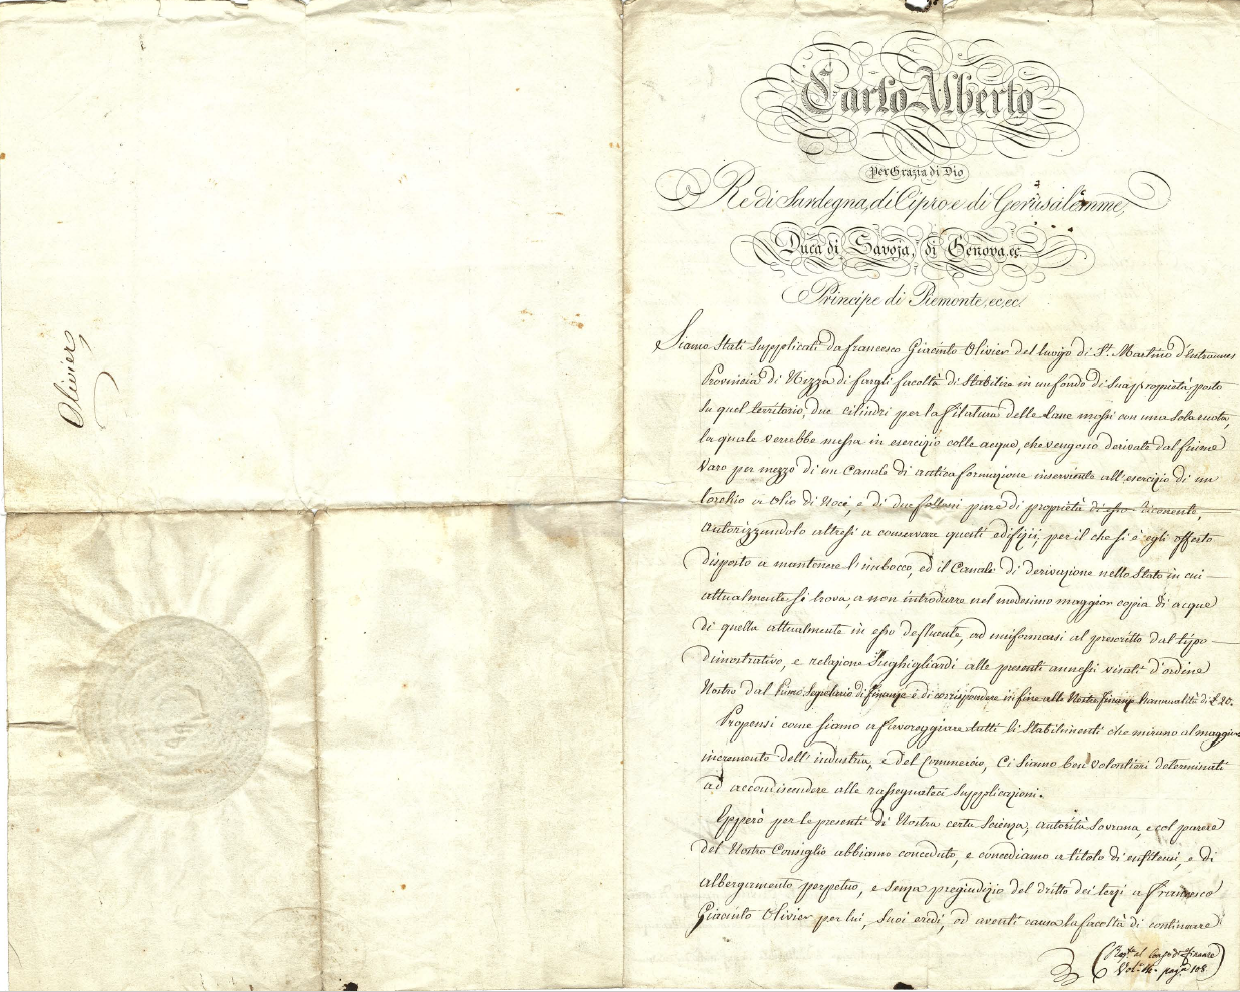 Olivier
Carlo Alberto
per Grazia di Dio
Re di Sardegna, di Cipro e di Gerusalemme,
Duca di Savoja, di Genova, ec.
Principe di Piemonte, ec, ec.
Siamo Stati Supplicati da Francesco Giacinto Olivier del luogo di St. Martino d'Entraunes
Provincia di Nizza di fargli facoltà di Stabilire in un fondo di sua proprietà posto
su quel territorio, due cilindri per la filatura delle Lane mossi con una sola ruota,
la quale verrebbe messa in esercizio colle acque, che vengono derivate dal fiume
Varo per mezzo di un Canale di antica formazione inserviente all'esercizio di un
torchio a Olio di Noce, e di due folloni pure di proprietà di esso Riccorente,
autorizzandolo altresì a conservare questi edifizii; per il che si è egli offerto
disposto a mantenere l'imbocco, ed il Canale di derivazione nello Stato in cui
attualmente si trova, a non introdurre nel medesimo maggior copia di acque
di quella attualmente in esso defluente, ad uniformarsi al prescritto dal tipo
dimostrativo, e relazione alle presenti annessi visati d'ordine
Nostro dal Primo Segretario di Finanze e di corrispondere in fine alle Nostre Finanze l'annualità di £ 20.
Propensi come siamo a favoreggiare tutti li Stabilimenti che mirano al maggior
incremento dell'industria, e del Commercio, Ci Siamo ben volontieri determinati
ad accondiscendere alle rassegnateci Supplicazioni.
Epperò per le presenti di Nostra certa Scienza, autorità Sovrana, e col parere
del Nostro Consiglio abbiamo conceduto, e concediamo a titolo di enfiteusi, e di
albergamento perpetuo, e senza pregiudizio del dritto dei terzi a Francesco
Giacinto Olivier per lui, suoi eredi, od aventi causa la facoltà di continuare
al di Finanze
Vol. pag.a 108.